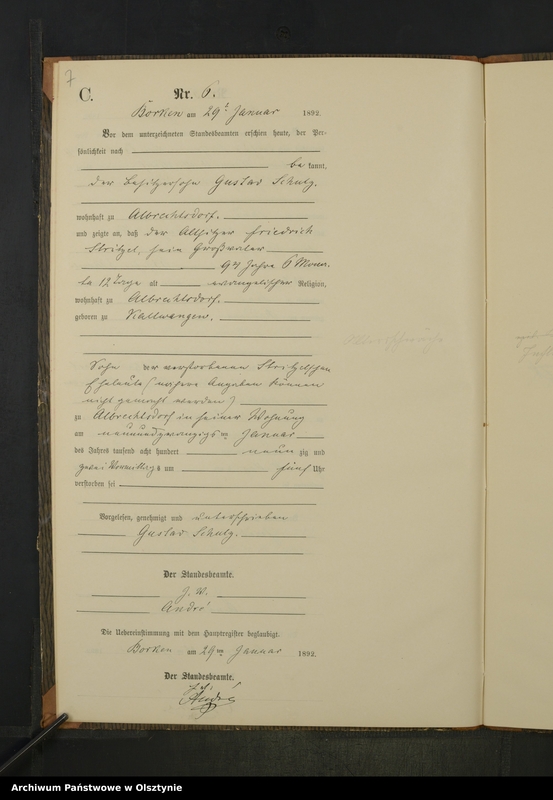 7
C.
Nr. 6.
Borken am 29t Januar 1892.
Vor dem unterzeichneten Standesbeamten erschien heute, der Per-
sönlichkeit nach
be kannt,
der Besitzersohn Gustav Schulz.
wohnhaft zu Albrechtsdorf.
und zeigte an, daß der Altsitzer Friedrich
Stritzel, sein Großvater
94 Jahre 6 Mona-
te 12 Tage alt evangelischer Religion,
wohnhaft zu Albrechtsdorf.
geboren zu Kallwangen.
Sohn der verstorbenen Stritzelschen
Eheleute (nähere Angaben können
nicht gemacht werden)
zu Albrechtsdorf in seiner Wohnung
am neunundzwanzigsten Januar
des Jahres tausend acht hundert neun zig und
zwei Vormittags um fünf Uhr
verstorben sei
Vorgelesen, genehmigt und unterschrieben
Gustav Schulz.
Der Standesbeamte.
J. V.
André
Die Uebereinstimmung mit dem Hauptregister beglaubigt.
Borken am 29ten Januar 1892.
Der Standesbeamte.
André
Archiwum Państwowe w Olsztynie